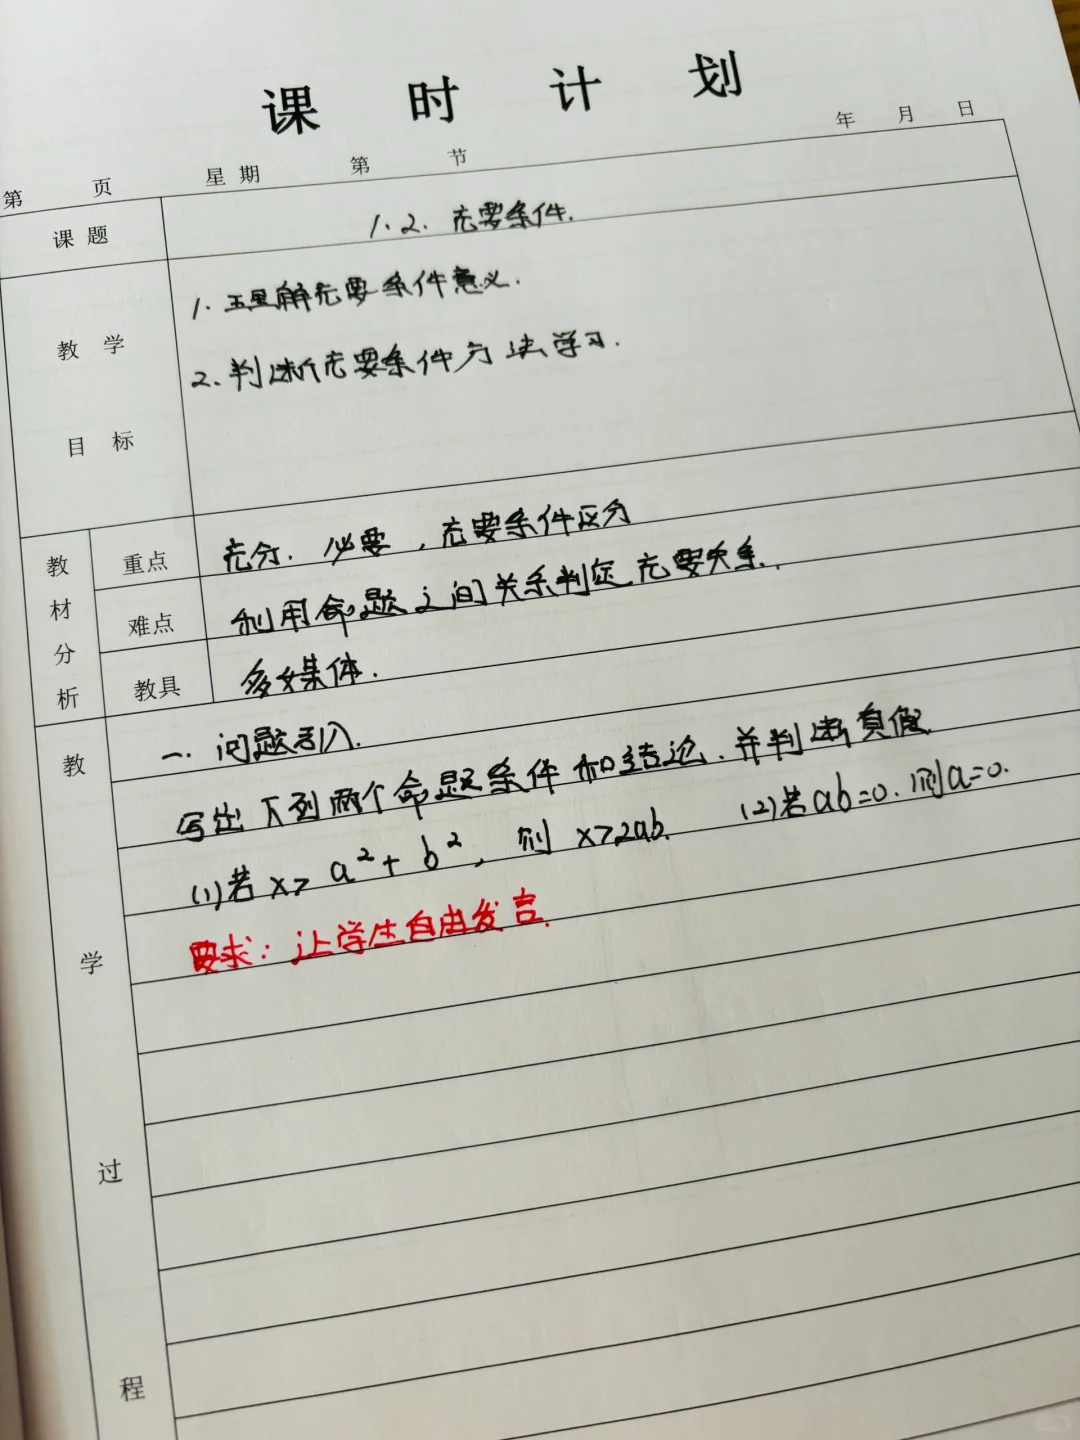 课 时 计 划
第 页 星 期 第 节 年 月 日
课 题 1.2. 充要条件.
教 学 目 标
1. 理解充要条件意义.
2. 判断充要条件方法学习.
教材分析
重点 充分. 必要 , 充要条件区分
难点 利用命题之间关系判定充要关系.
教具 多媒体.
教 学 过 程
一. 问题引入.
写出下列两个命题条件和结论. 并判断真假
(1)若 x> a²+ b², 则 x>2ab. (2)若ab=0. 则a=0.
要求: 让学生自由发言.